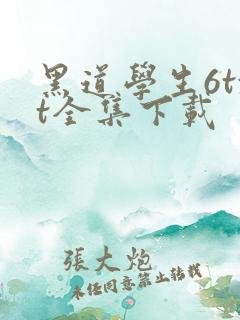 黑道學生6tx
t全集下載
張大炮
未经同意禁止转载